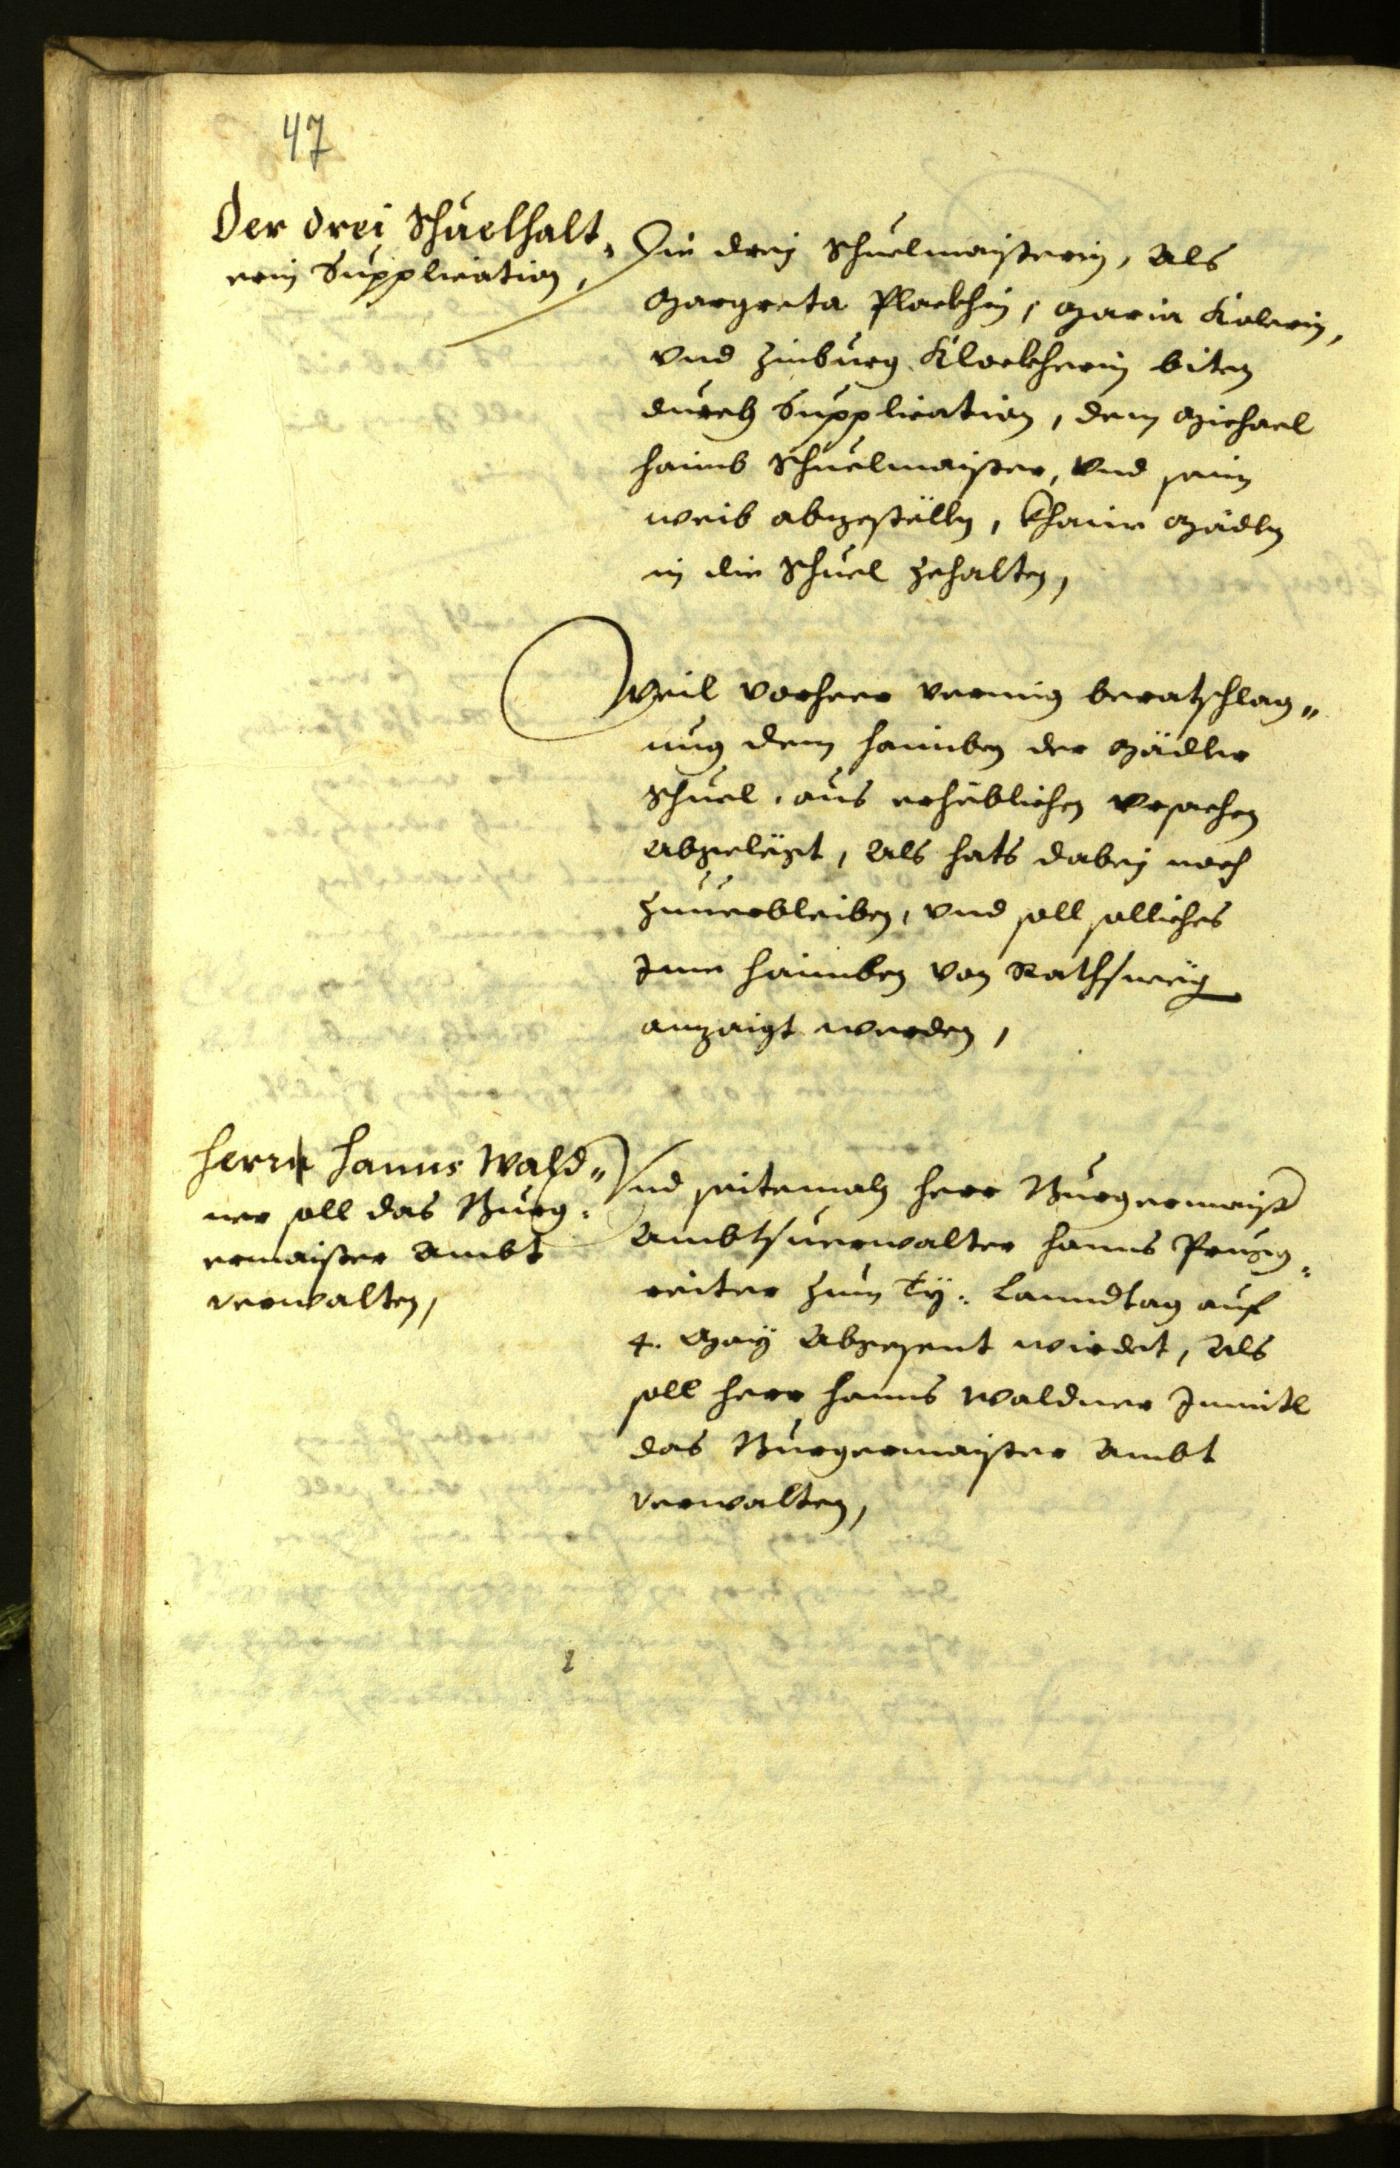 47
Der drei Schuelhalt¬
erin Supplication,
Die drey Schuelmaisterin, als
Margreta Plackhin, Maria Kolerin,
vnd Zinburg Klockherin biten
durch Supplication, dem Michael
Haimb Schuelmaister, vnd sein
weib abzestölln, khaine Mädln
in die Schuel zehalten,
Weil vorheer vermüg beratschlag¬
ung dem Haimben der Mädler
Schuel, aus erhöblichen vrsachen
abgelögt, als hats dabey noch
zuuerbleiben, vnd soll solliches
Ime Haimben von Rathsweg
anzaigt werden,
Herr Hanns Wald¬
ner soll das Burg¬
ermaister Ambt
verwalten,
Vnd seitemaln Herr Burgermaister
Ambtsuerwalter Hanns
reiter zum Ty: Lanndtag auf
4. May abgesent wirdet, als
soll Herr Hanns Waldner Inmitl
das Burgermaister Ambt
verwalten,